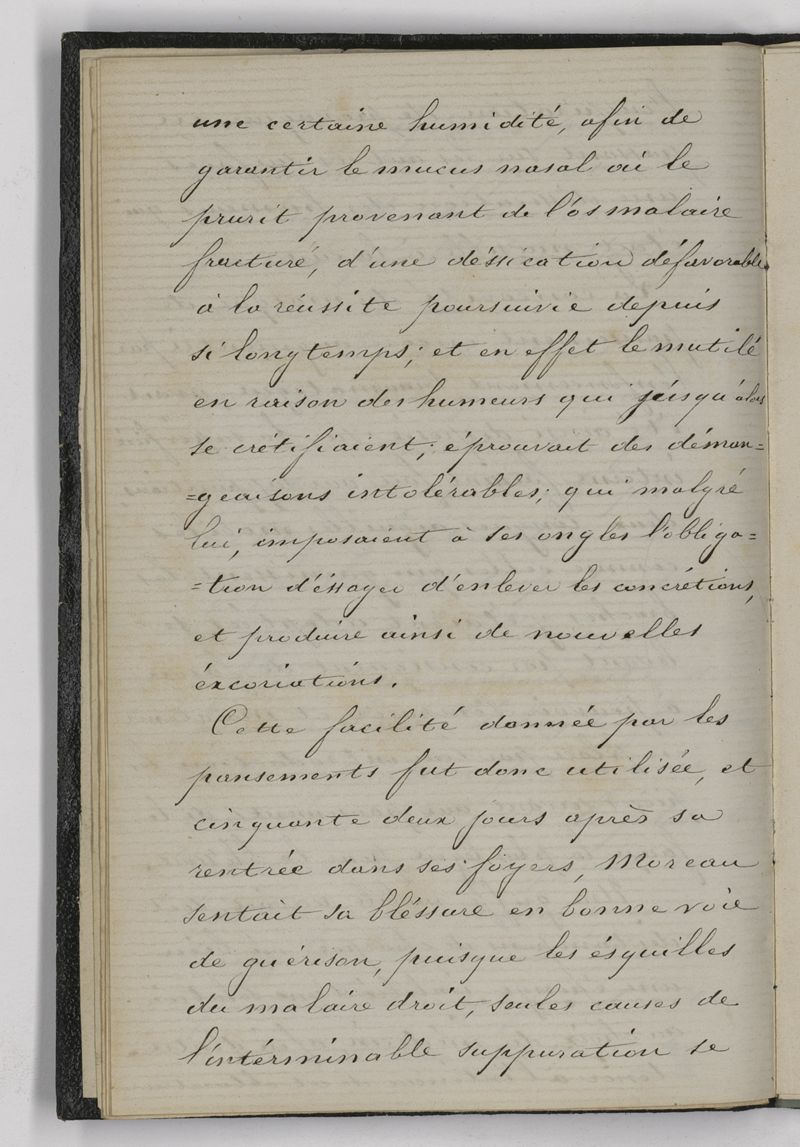 une certaine humidité, afin de
garantir le mucus nasal où le
prurit provenant de l'ós malaire
fracturé, d'une déssication défavorable
à la réussite poursuivie depuis
si longtemps; et en effet le mutilé
en raison des humeurs qui júsqu'alors
se crétifiaient; éprouvait des déman=
=geaisons intolérables; qui malgré
lui, imposaient à ses ongles l'obliga=
=tion d'éssayer d'enlever les concrétions,
et produire ainsi de nouvelles
éxcoriations.
Cette facilité donnée par les
pansements fut donc utilisée, et
cinquante deux jours après sa
rentrée dans ses foyers, Moreau
sentait sa bléssure en bonne voie
de guérison, puisque les ésquilles
du malaire droit, seules causes de
l'intérminable suppuration se